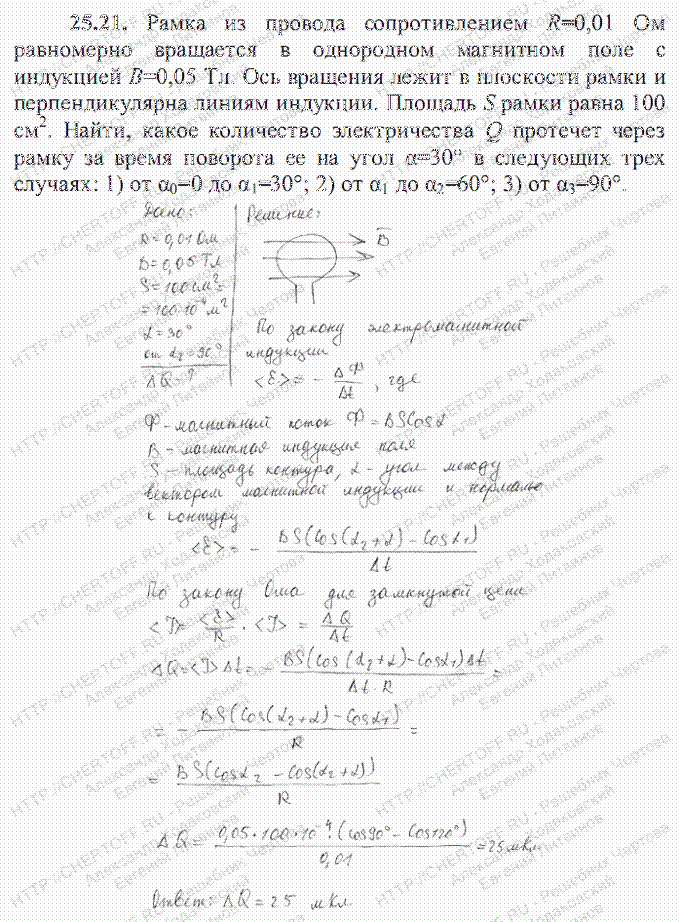 25.21. Рамка из провода сопротивлением R=0,01 Ом
равномерно вращается в однородном магнитном поле с
индукцией B=0,05 Тл. Ось вращения лежит в плоскости рамки и
перпендикулярна линиям индукции. Площадь S рамки равна 100
см². Найти, какое количество электричества Q протечет через
рамку за время поворота ее на угол α=30° в следующих трех
случаях: 1) от α₀=0 до α₁=30°; 2) от α₁ до α₂=60°; 3) от α₃=90°.
Дано:
R=0,01 Ом
B=0,05 Тл
S=100 см²=
=100·10⁻⁴ м²
α=30°
от α₂=90°
ΔQ-?
Решение:
B
По закону электромагнитной
индукции
<ℰ>= - ΔФ/Δt, где
Ф-магнитный поток Ф=BScosα
B - магнитная индукция поля
S - площадь контура, α - угол между
вектором магнитной индукции и нормалью
к контуру
<ℰ>= - BS(cos(α₂+α)-cosα₁)/Δt
По закону Ома для замкнутой цепи
<I>= <ℰ>/R · <I>= ΔQ/Δt
ΔQ=<I>Δt= - BS(cos(α₂+α)-cosα₁)Δt/Δt·R =
= - BS(cos(α₂+α)-cosα₁)/R =
= BS(cosα₂-cos(α₂+α))/R
ΔQ= 0,05·100·10⁻⁴·(cos90°-cos120°)/0,01 =25мкл
Ответ: ΔQ=25 мкл
HTTP://CHERTOFF.RU - Решебник Чертова
Александр Ходаковский
Евгений Литвинов